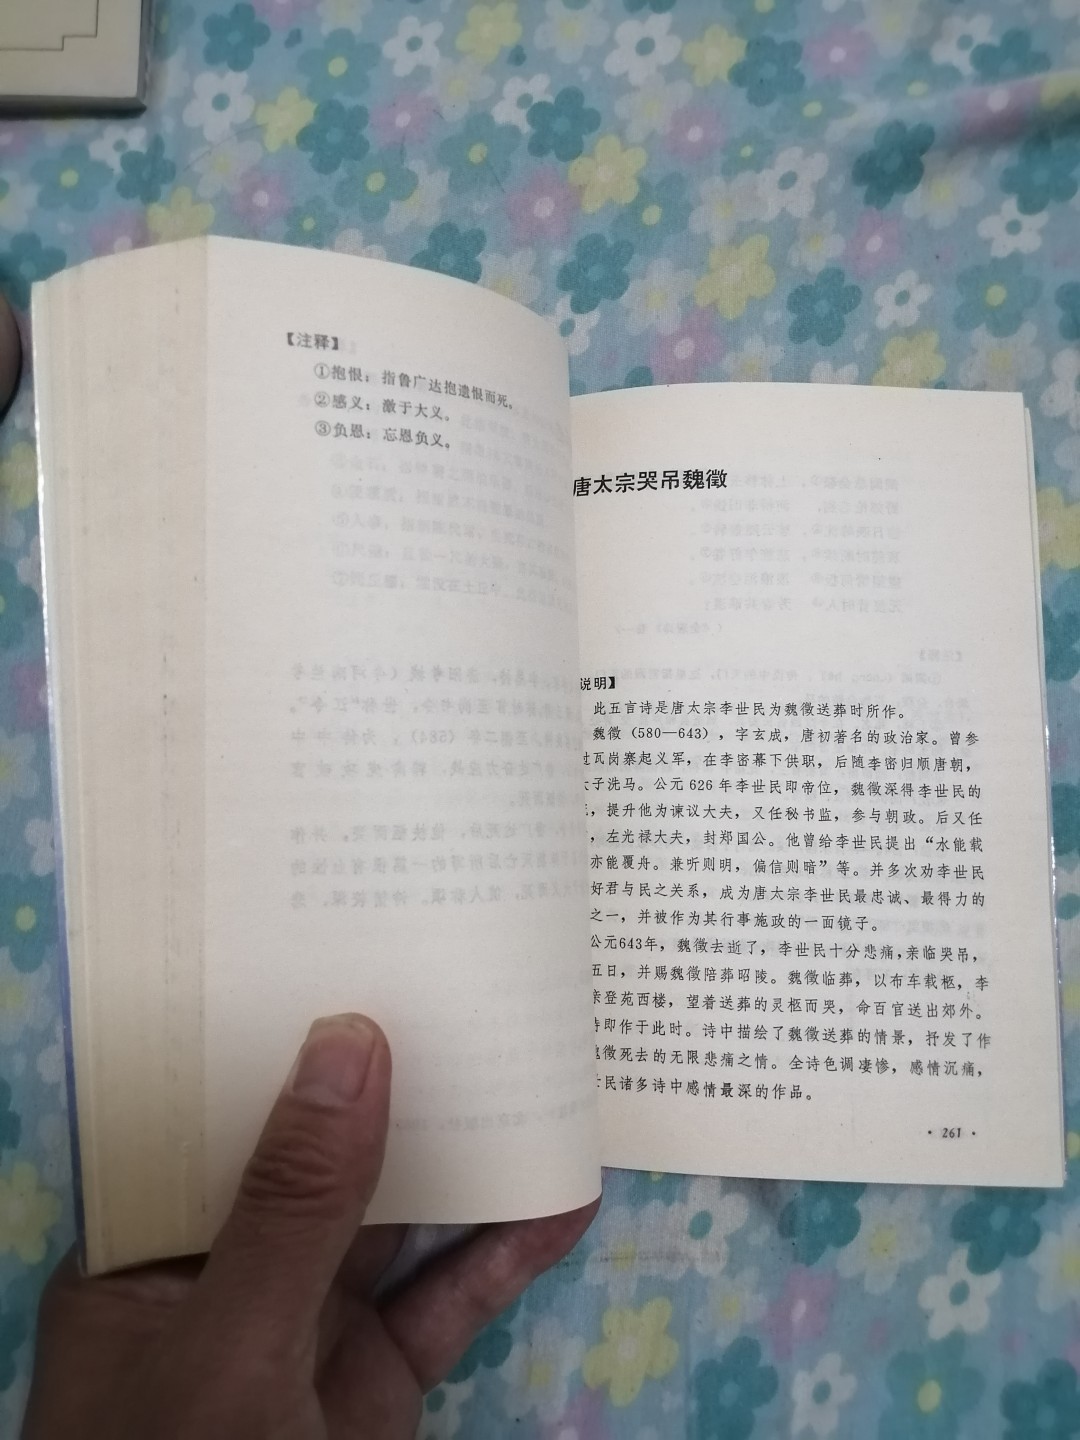 【注释】
①抱恨：指鲁广达抱遗恨而死。
②感义：激于大义。
③负恩：忘恩负义。
唐太宗哭吊魏徵
说明】
此五言诗是唐太宗李世民为魏徵送葬时所作。
魏徵（580—643），字玄成，唐初著名的政治家。曾参
过瓦岗寨起义军，在李密幕下供职，后随李密归顺唐朝，
太子洗马。公元626年李世民即帝位，魏徵深得李世民的
，提升他为谏议大夫，又任秘书监，参与朝政。后又任
，左光禄大夫，封郑国公。他曾给李世民提出“水能载
亦能覆舟。兼听则明，偏信则暗”等。并多次劝李世民
好君与民之关系，成为唐太宗李世民最忠诚、最得力的
之一，并被作为其行事施政的一面镜子。
公元643年，魏徵去逝了，李世民十分悲痛，亲临哭吊，
五日，并赐魏徵陪葬昭陵。魏徵临葬，以布车载柩，李
亲登苑西楼，望着送葬的灵柩而哭，命百官送出郊外。
诗即作于此时。诗中描绘了魏徵送葬的情景，抒发了作
魏徵死去的无限悲痛之情。全诗色调凄惨，感情沉痛，
民诸多诗中感情最深的作品。
· 261 ·